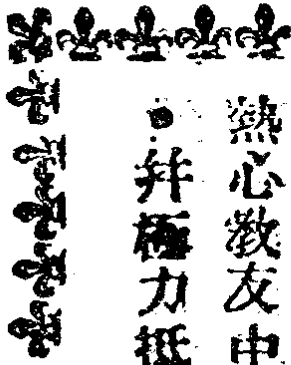 熱心教友中
并極力抵